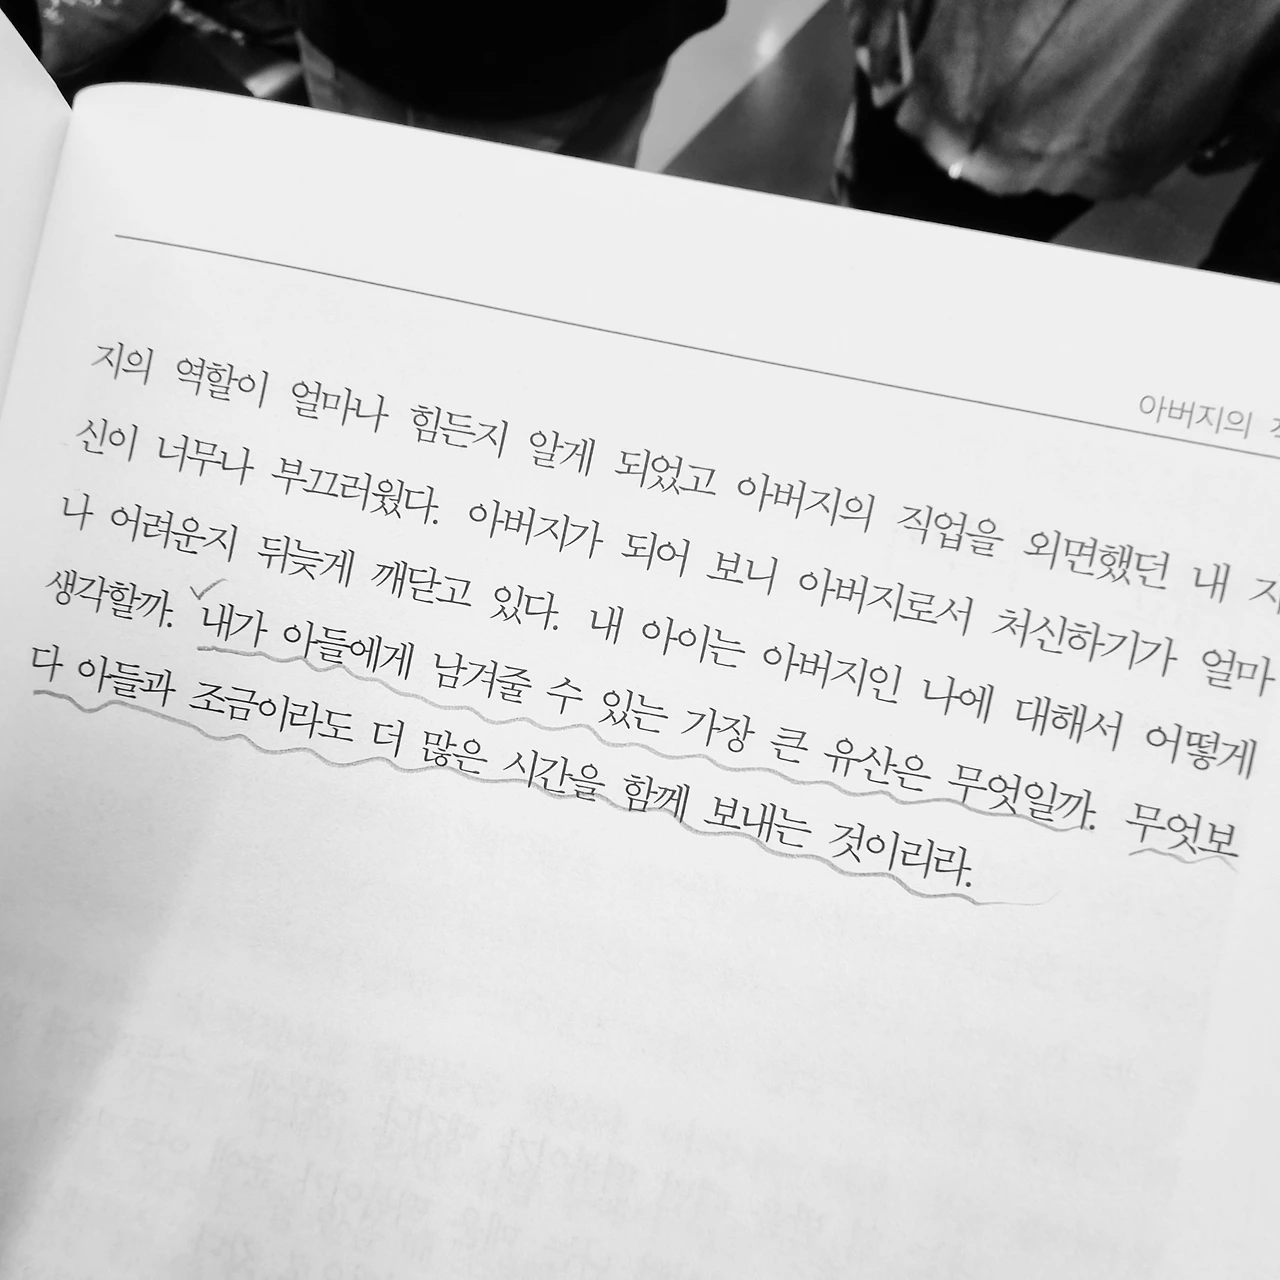 아버지의
지의 역할이 얼마나 힘든지 알게 되었고 아버지의 직업을 외면했던 내
신이 너무나 부끄러웠다. 아버지가 되어 보니 아버지로서 처신하기가 얼마
나 어려운지 뒤늦게 깨닫고 있다. 내 아이는 아버지인 나에 대해서 어떻게
생각할까. 내가 아들에게 남겨줄 수 있는 가장 큰 유산은 무엇일까. 무엇보
다 아들과 조금이라도 더 많은 시간을 함께 보내는 것이리라.